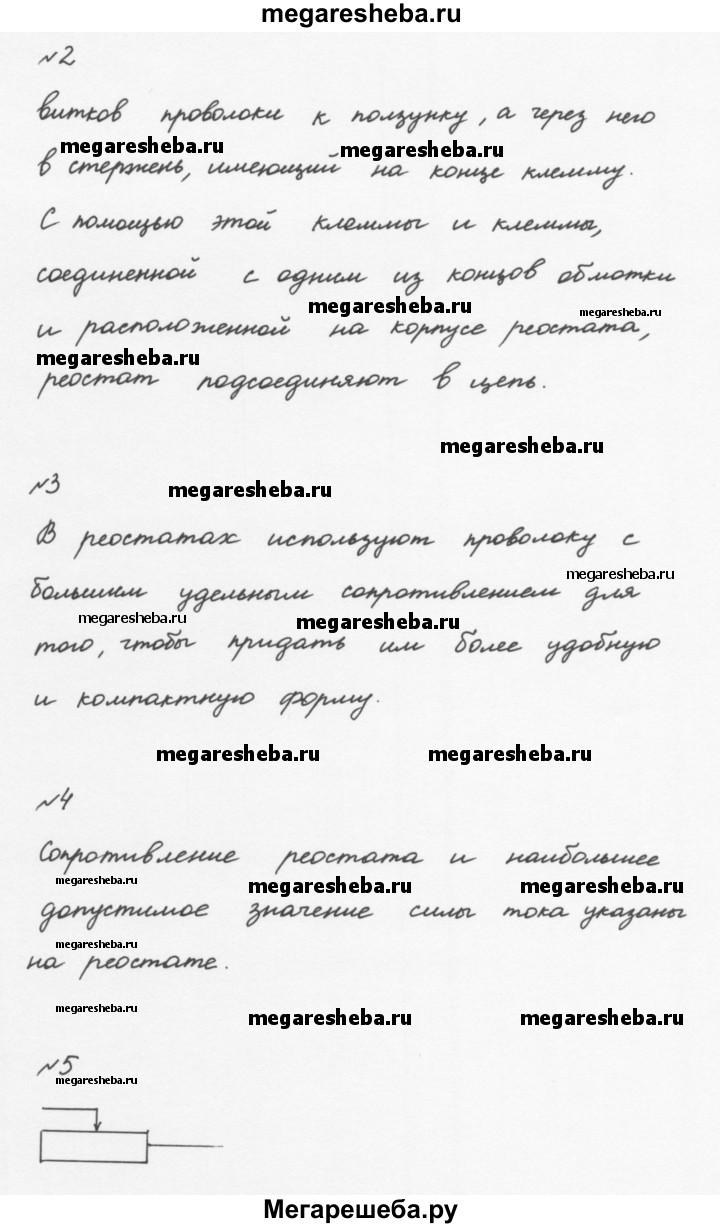 megaresheba.ru
№2
витков проволоки к ползунку, а через него
megaresheba.ru megaresheba.ru
в стержень, имеющий на конце клемму.
С помощью этой клеммы и клеммы,
соединенной с одним из концов обмотки
megaresheba.ru megaresheba.ru
и расположенной на корпусе реостата,
megaresheba.ru
реостат подсоединяют в цепь.
megaresheba.ru
№3 megaresheba.ru
В реостатах используют проволоку с
megaresheba.ru
большим удельным сопротивлением для
megaresheba.ru megaresheba.ru
того, чтобы придать им более удобную
и компактную форму.
megaresheba.ru megaresheba.ru
№4
Сопротивление реостата и наибольшее
megaresheba.ru megaresheba.ru megaresheba.ru
допустимое значение силы тока указаны
megaresheba.ru
на реостате.
megaresheba.ru megaresheba.ru megaresheba.ru
№5
megaresheba.ru
Мегарешеба.ру